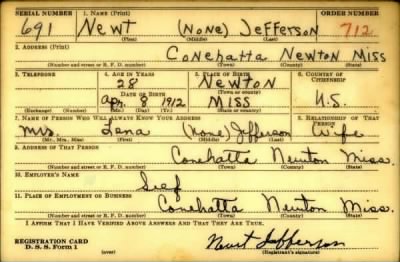 SERIAL NUMBER 1. NAME (Print) ORDER NUMBER
691 Newt (None) Jefferson 712
(First) (Middle) (Last)
2. ADDRESS (Print)
Conehatta Newton Miss
(Number and street or R. F. D. number) (Town) (County) (State)
3. TELEPHONE 4. AGE IN YEARS 5. PLACE OF BIRTH 6. COUNTRY OF CITIZENSHIP
28 Newton
(Town or county)
DATE OF BIRTH
Apr. 8 1912 Miss U.S.
(Exchange) (Number) (Mo.) (Day) (Yr.) (State or country)
7. NAME OF PERSON WHO WILL ALWAYS KNOW YOUR ADDRESS 8. RELATIONSHIP OF THAT PERSON
Mrs. Lena (None) Jefferson Wife
(Mr., Mrs., Miss) (First) (Middle) (Last)
9. ADDRESS OF THAT PERSON
Conehatta Newton Miss.
(Number and street or R. F. D. number) (Town) (County) (State)
10. EMPLOYER'S NAME
Self
11. PLACE OF EMPLOYMENT OR BUSINESS
Conehatta Newton Miss.
(Number and street or R. F. D. number) (Town) (County) (State)
I AFFIRM THAT I HAVE VERIFIED ABOVE ANSWERS AND THAT THEY ARE TRUE.
REGISTRATION CARD
D. S. S. Form 1 (over) Newt Jefferson
(Registrant's signature)